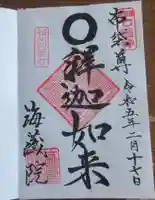 布袋尊 令和五年二月十七日
釋迦如来
海蔵院